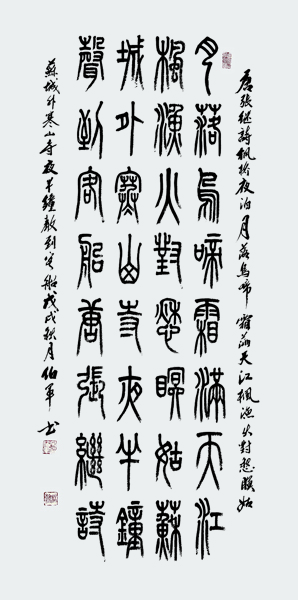 唐張继詩楓橋夜泊月落烏啼霜滿天江楓漁火對愁眠姑
月落烏啼霜滿天江
楓漁火對愁眠姑蘇
城外寒山寺夜半鐘
聲到客船唐張繼詩
蘇城外寒山寺夜半鐘聲到客船戊戌秋月伯軍书